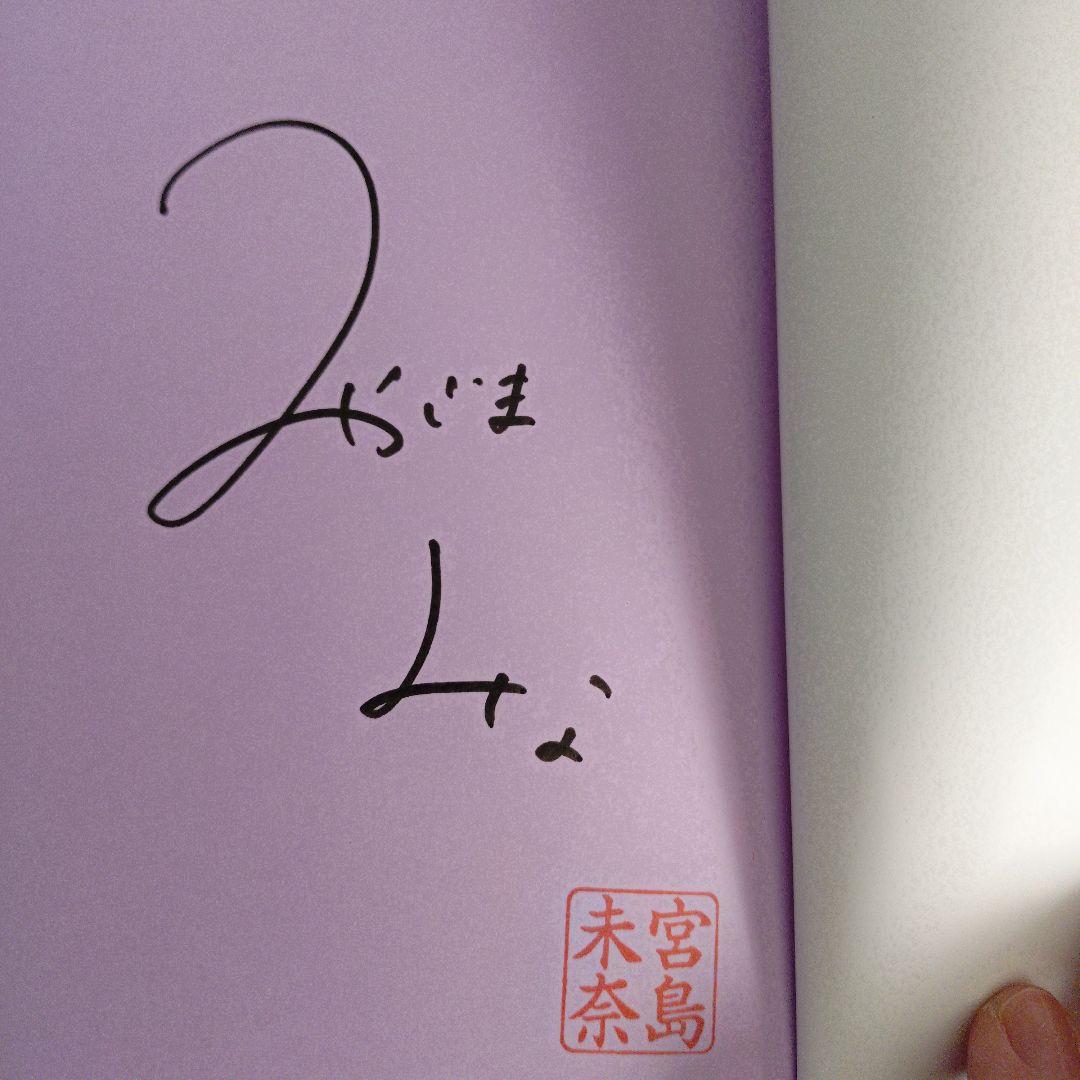 みやじま
みな
宮島
未奈